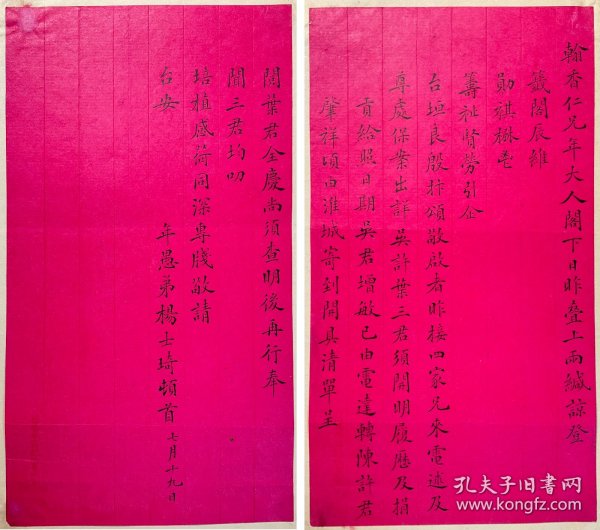 翰香仁兄年大人閣下日昨疊上兩緘諒登
籤閣辰維
勛祺楙邕
籌祉賢勞引企
台垣良殷抃頌敬啟者昨接四家兄來電述及
尊處保案出詳吳許葉三君須開明履歷及捐
貢給照日期吳君增敏已由電達轉陳許君
肇祥頃由淮城寄到開具清單呈
閱葉君全慶尚須查明後再行奉
聞三君均叨
培植感荷同深專牋敬請
台安
年愚弟楊士琦頓首 七月十九日
孔夫子旧书网
www.kongfz.com